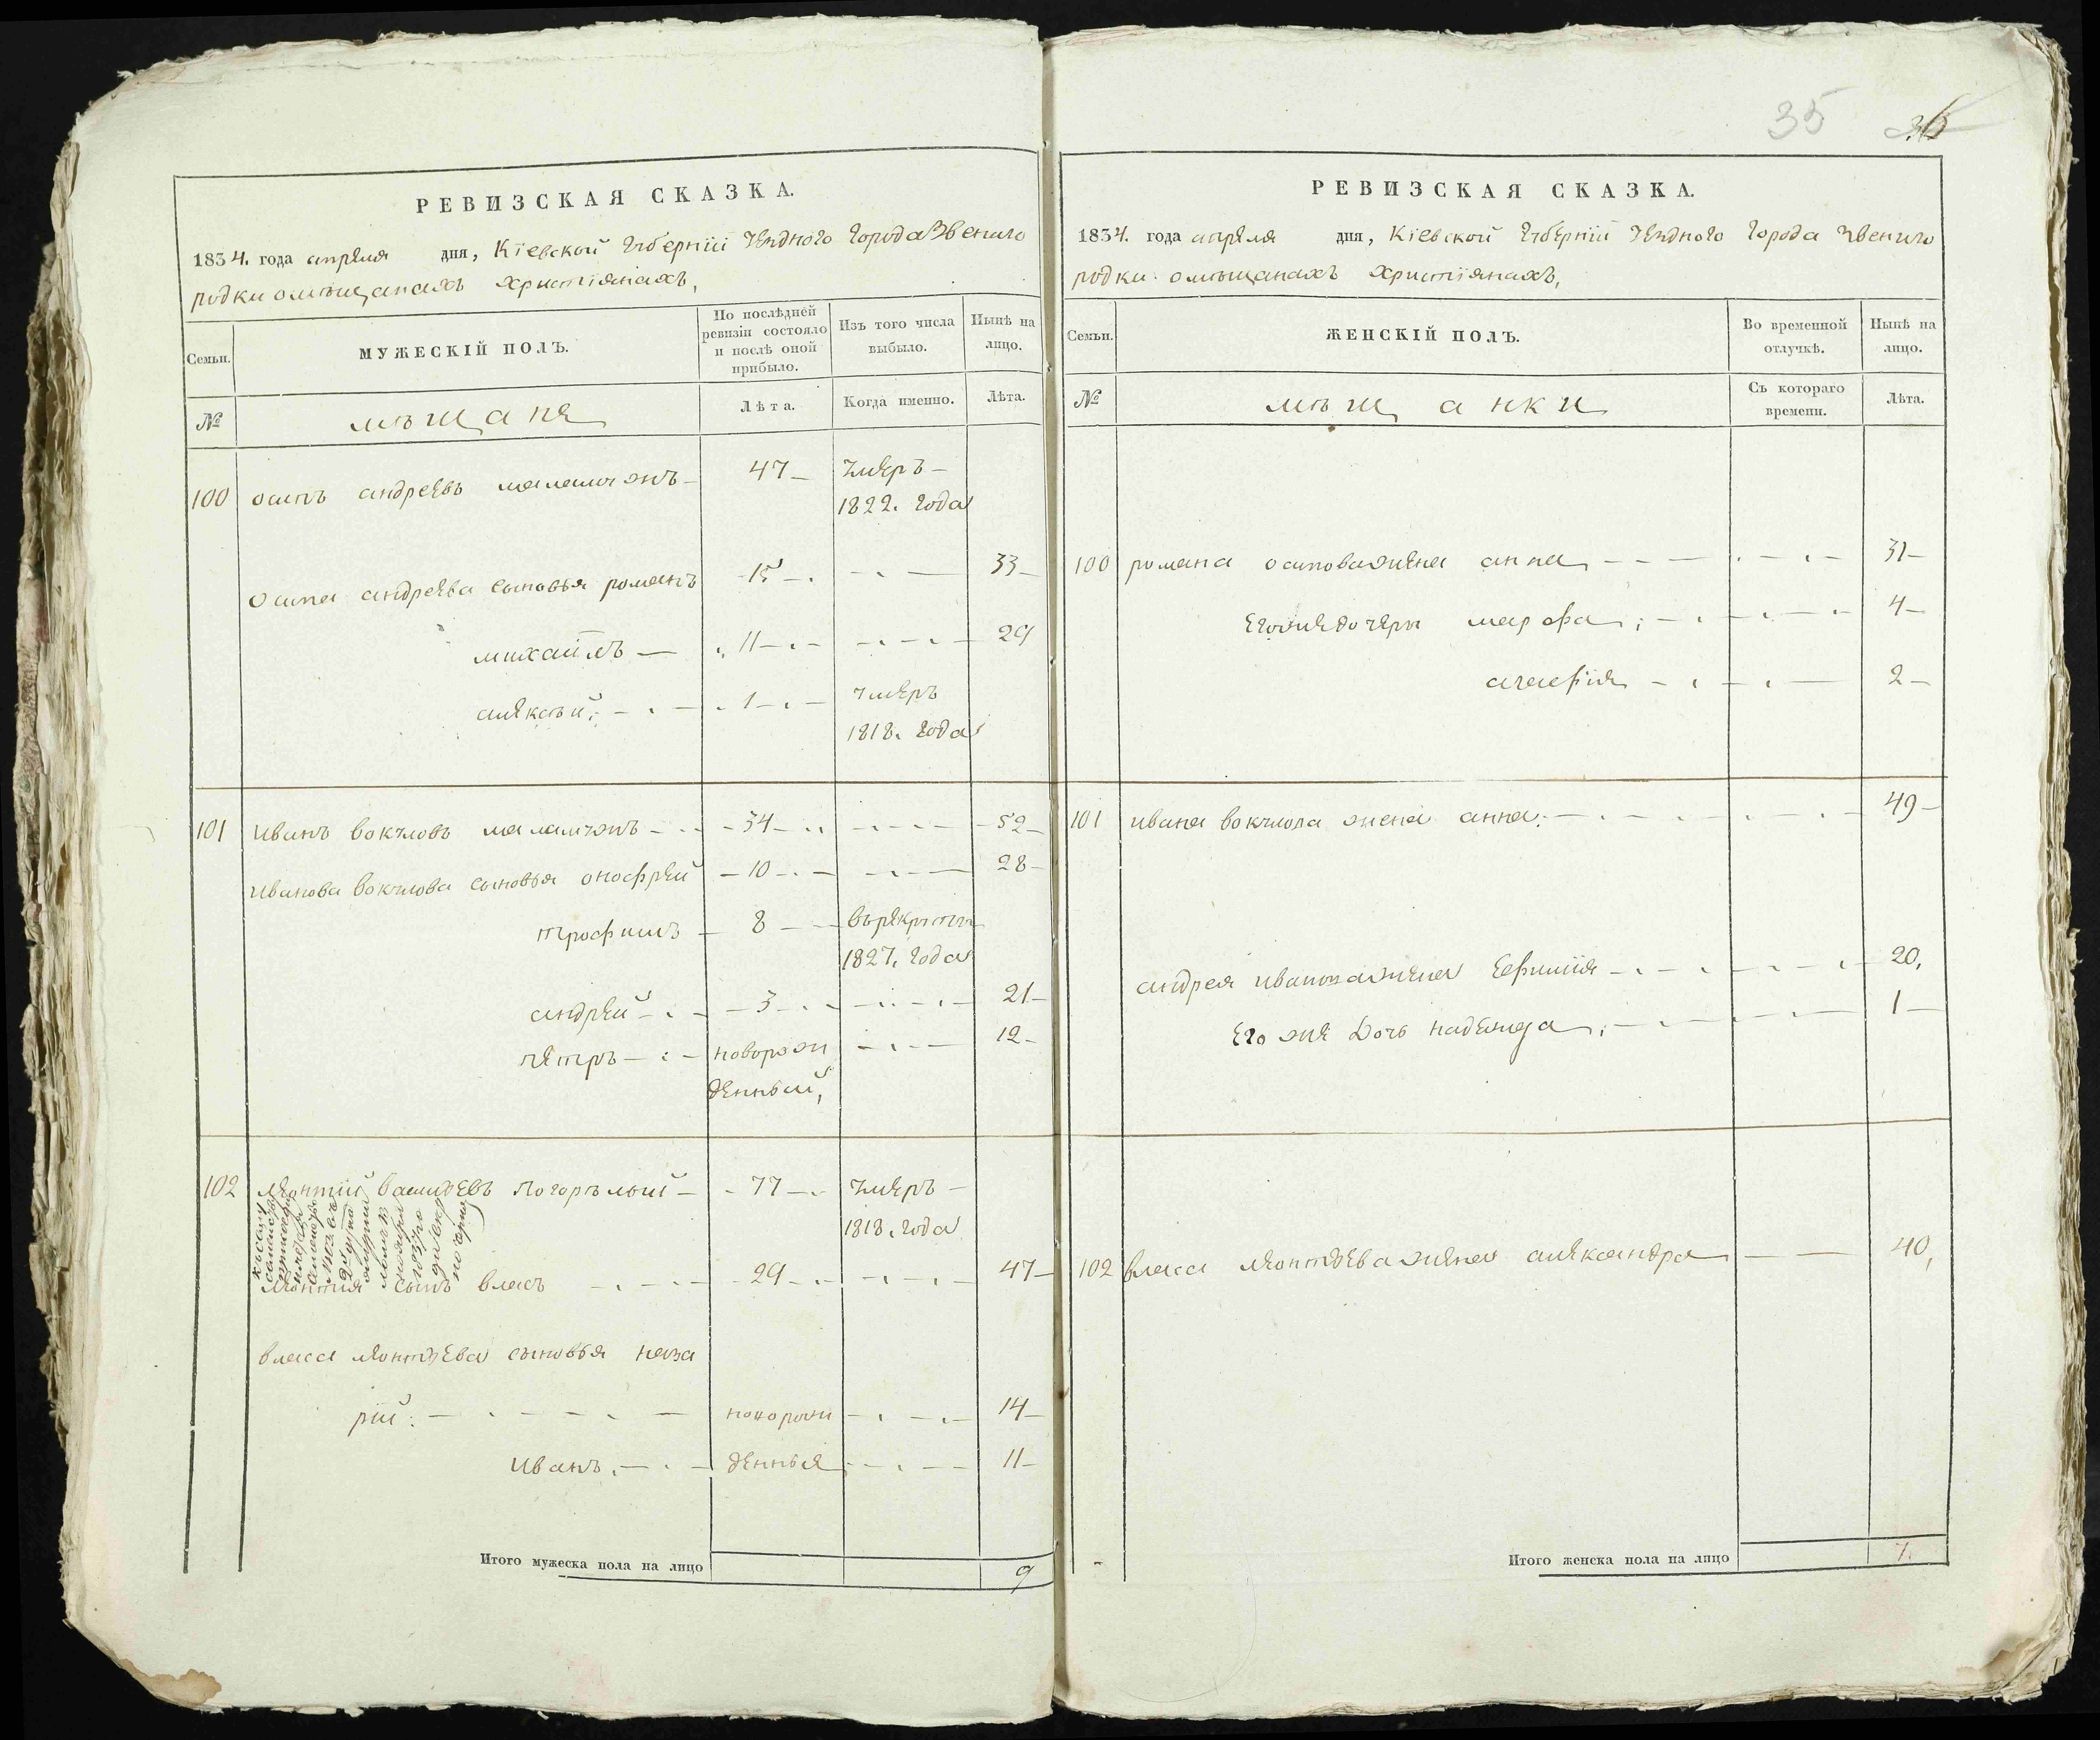 35 36
РЕВИЗСКАЯ СКАЗКА.
1834. года апреля дня, Кіевской Губерніи Уездного Города Звениго
родки о мѣщанахъ христіянахъ,
Семьи. МУЖЕСКІЙ ПОЛЪ. По послѣдней ревизіи состояло и послѣ оной прибыло. Изъ того числа выбыло. Нынѣ на лицо.
№ мѣщане Лѣта. Когда именно. Лѣта.
100 осипъ андреевъ 47 Умеръ
1822. Года
осипа андреева сыновья романъ 15 33
михаилъ 11 29
алексѣй 1 умеръ
1818. Года
101 иванъ вокуловъ 34 52
иванова вокулова сыновья онофрей 10 28
трофимъ 8 врекруты
1827. Года
андрей 3 21
петръ новорож 12
денный,
102 леонтий василиевъ погорѣлый 77 Умеръ
1818. Года
леонтия сынъ власъ 29 47
власа леонтьева сыновья наза
рий: новорож 14
иванъ. денныя 11
Итого мужеска пола на лицо 9
РЕВИЗСКАЯ СКАЗКА.
1834. года апреля дня, Кіевской Губерніи Уездного Города Звениго
родки о мѣщанахъ христіянахъ,
Семьи. ЖЕНСКІЙ ПОЛЪ. Во временной отлучкѣ. Нынѣ на лицо.
№ мѣщанки Съ котораго времени. Лѣта.
100 романа осипова жена анна 31
его же дочери марфа; 4
агафия 2
101 ивана вокулова жена анна: 49
андрея иванова жена ефимия 20,
его же дочь надежда; 1
102 власа леонтьева жена александра 40,
Итого женска пола на лицо 7.